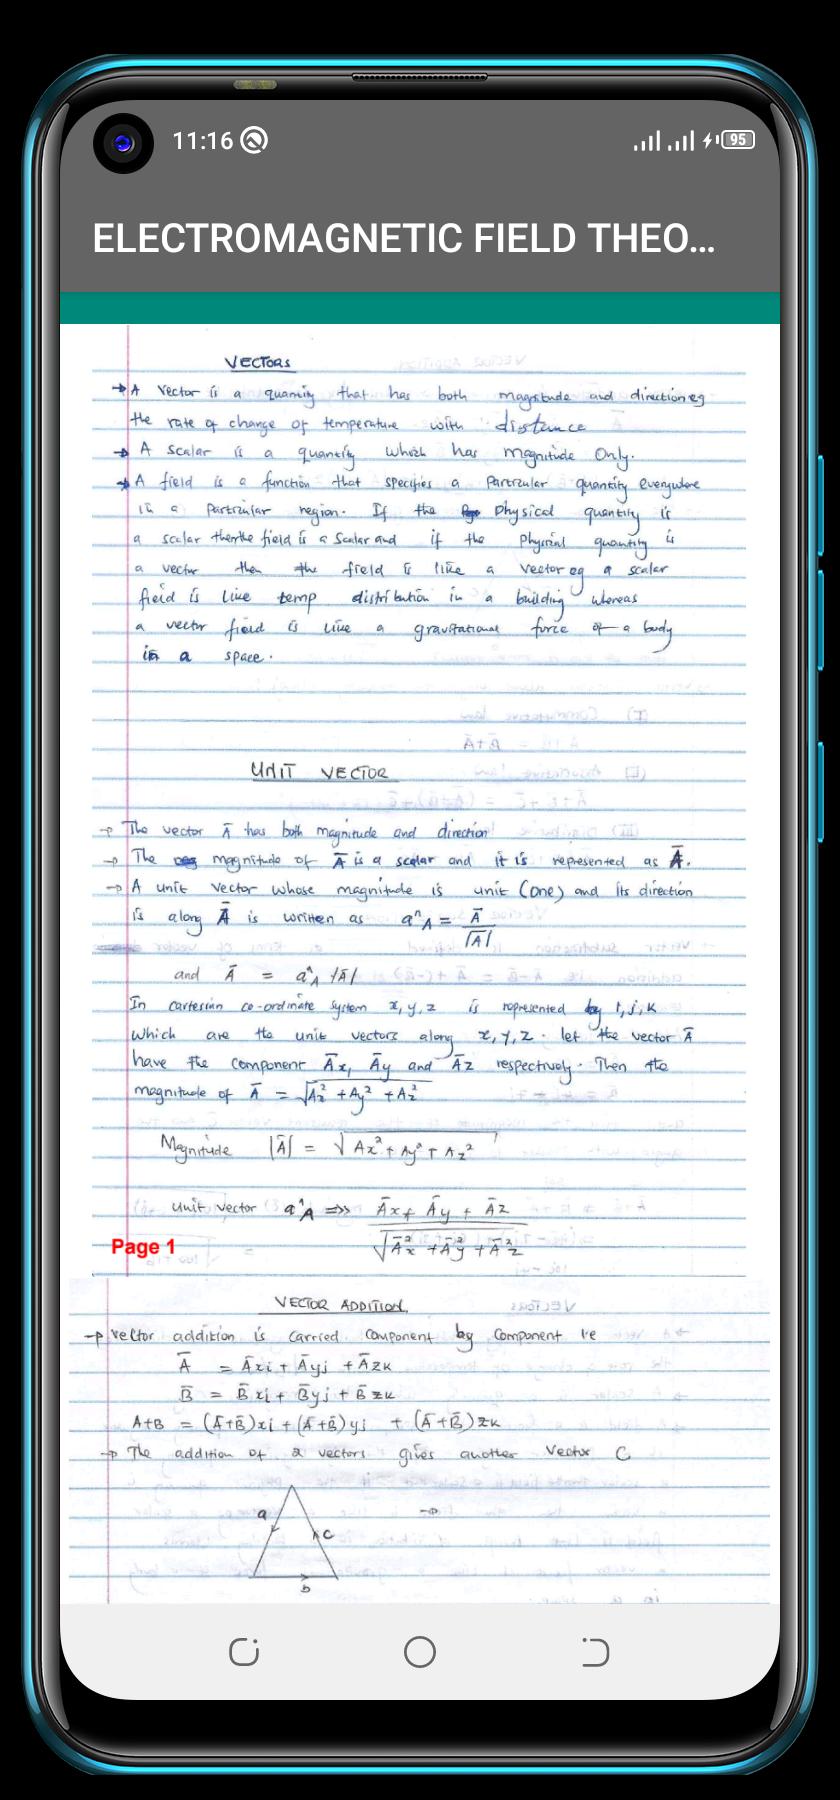 11:16
95
ELECTROMAGNETIC FIELD THEO...
VECTORS
→ A vector is a quantity that has both magnitude and direction eg
the rate of change of temperature with distance
→ A scalar is a quantity which has magnitude Only.
→ A field is a function that specifies a particular quantity everywhere
in a particular region. If the physical quantity is
a scalar then the field is a scalar and if the physical quantity is
a vector then the field is like a vector eg a scalar
field is like temp distribution in a building whereas
a vector field is like a gravitational force of a body
in a space.
UNIT VECTOR
→ The vector Ā has both magnitude and direction
→ The magnitude of Ā is a scalar and it is represented as Ā.
→ A unit vector whose magnitude is unit (one) and its direction
is along Ā is written as a^A = Ā / |Ā|
and Ā = a^A |Ā|
In cartesian co-ordinate system x, y, z is represented by i, j, k
which are the unit vectors along x, y, z. let the vector Ā
have the component Āx, Āy and Āz respectively. Then the
magnitude of Ā = √Ax² + Ay² + Az²
Magnitude |Ā| = √Ax² + Ay² + Az²
Unit vector a^A ⇒>> Āx + Āy + Āz / √Āx² + Āy² + Āz²
Page 1
VECTOR ADDITION
→ Vector addition is carried component by component ie
Ā = Āxi + Āyj + Āzk
B̄ = B̄xi + B̄yj + B̄zk
A+B = (Ā+B̄)xi + (Ā+B̄)yj + (Ā+B̄)zk
→ The addition of 2 vectors gives another vector C
a
c
b